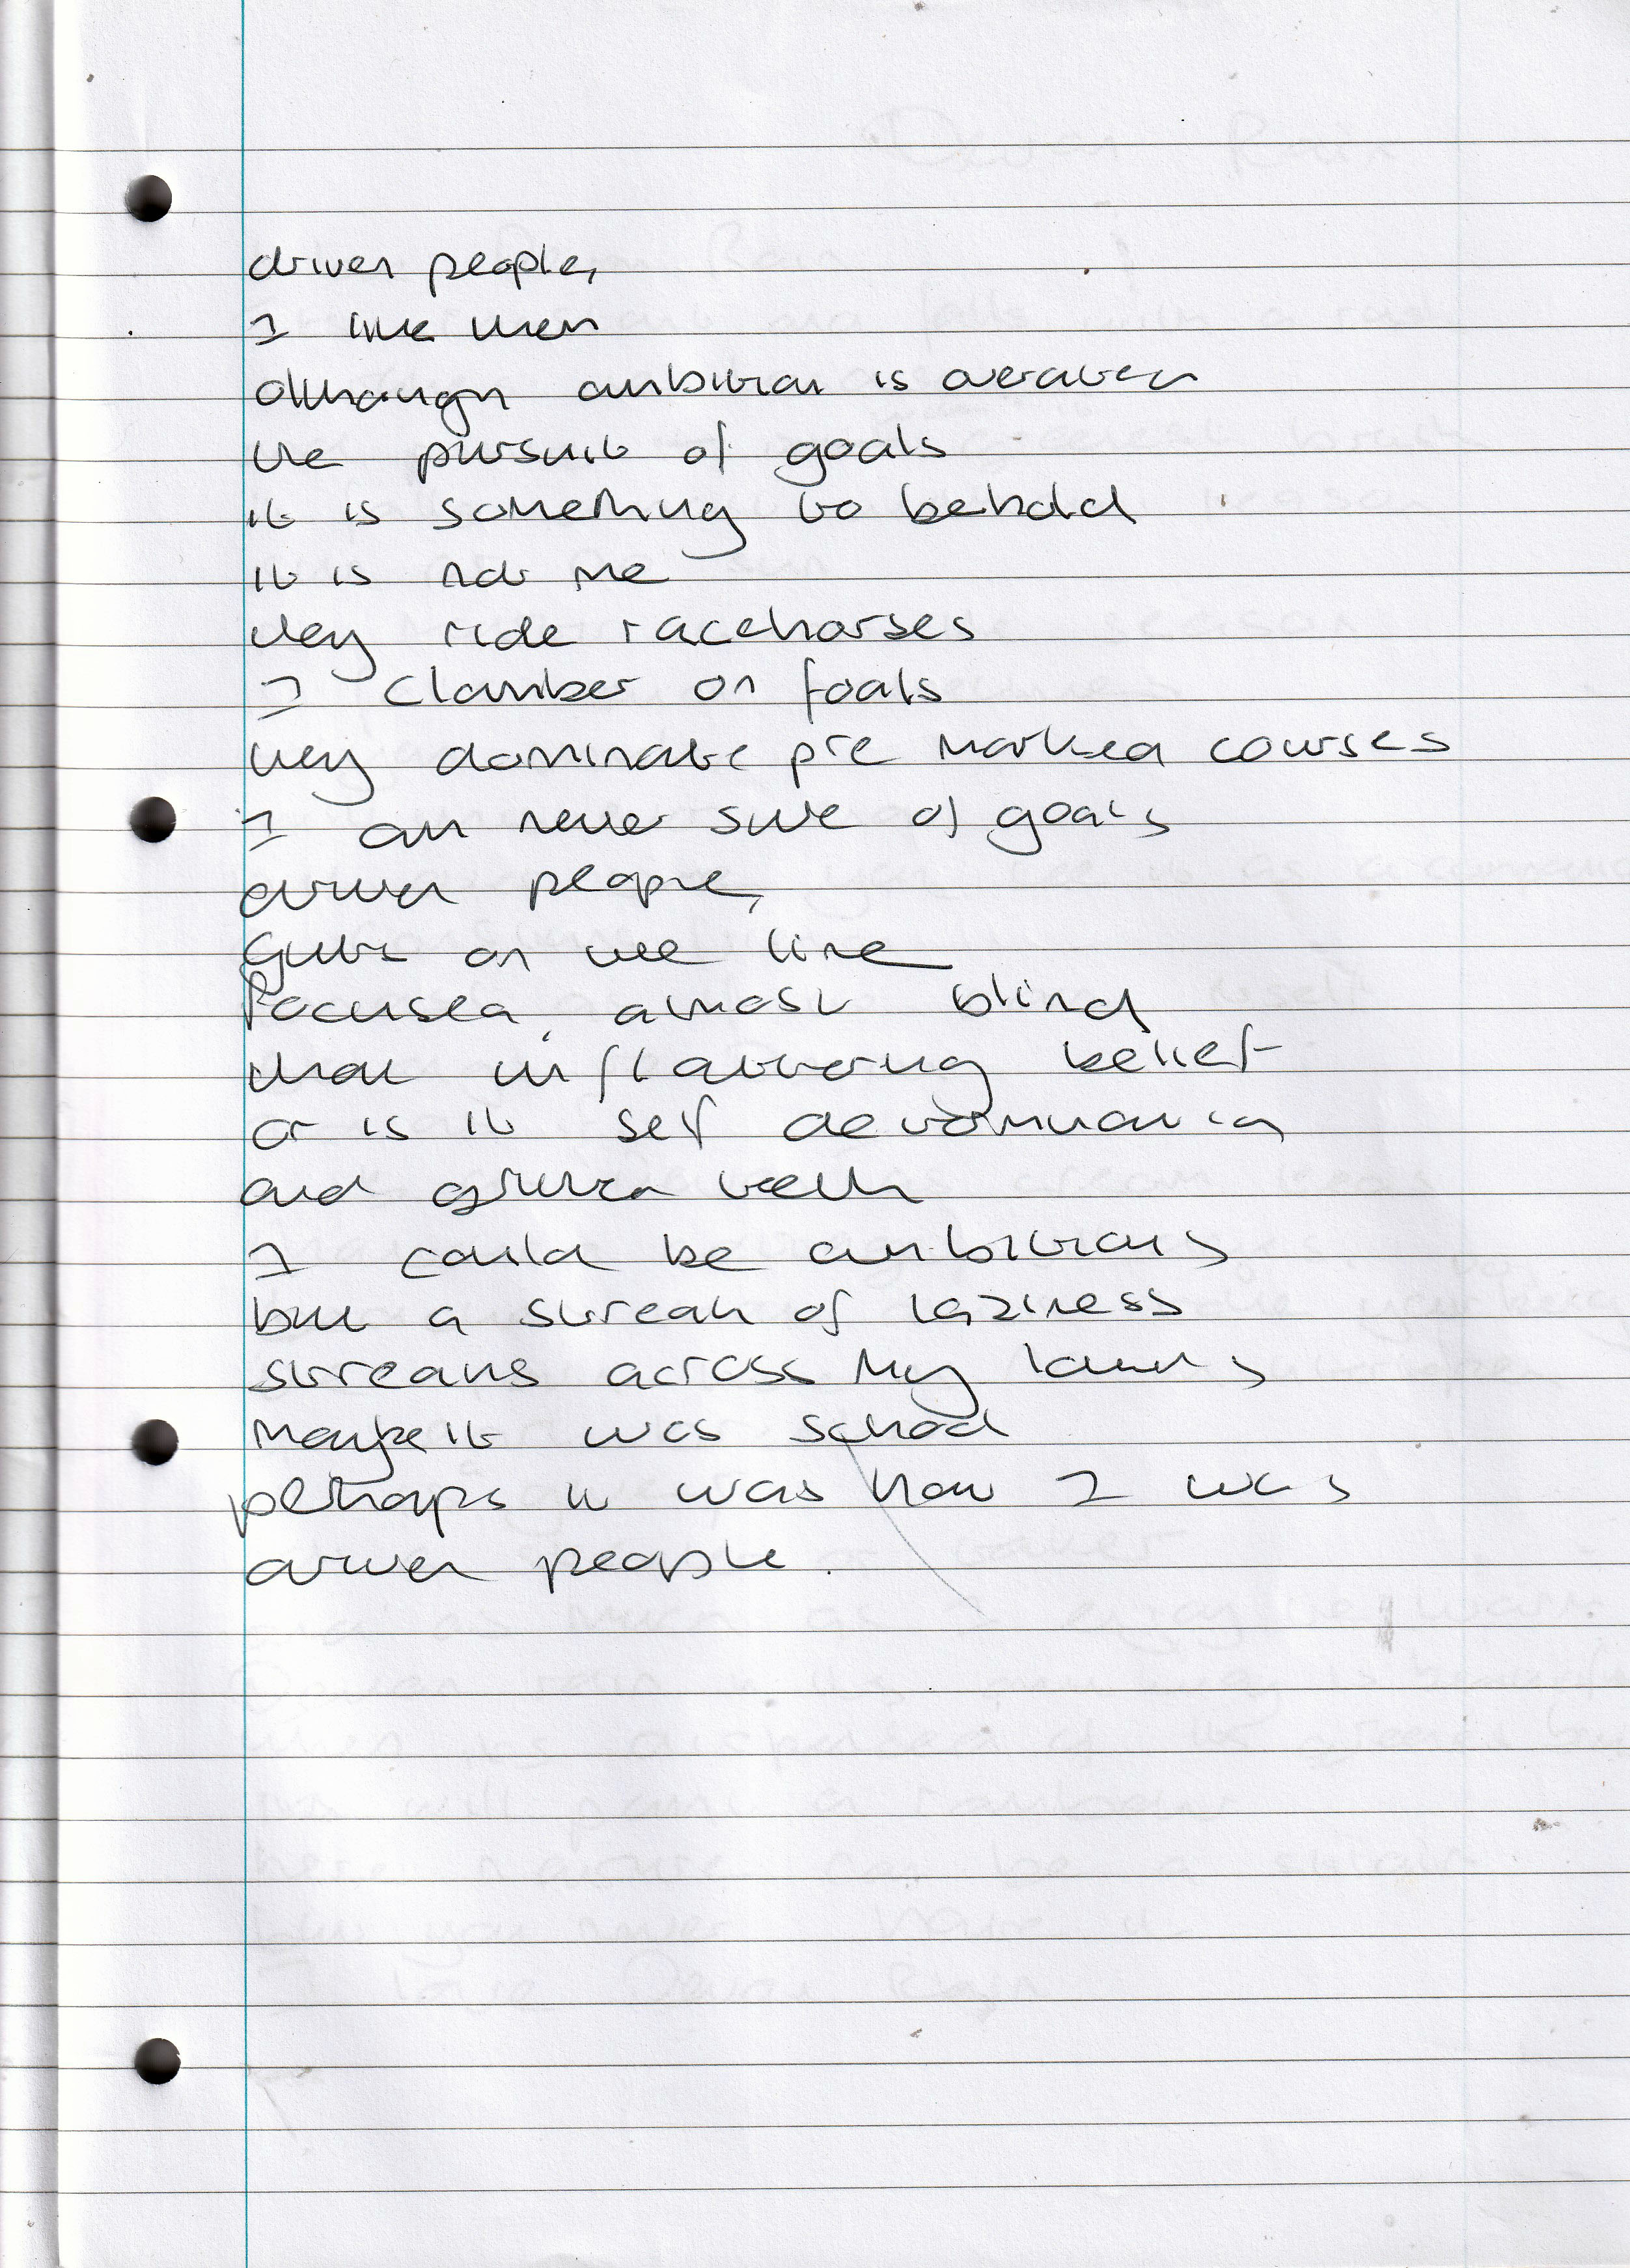 driven people,
I like them
although ambition is overaten
the pursuit of goals
it is something to behold
it is not me
they ride racehorses
I clamber on foals
they dominate pre marked courses
I am never sure of goals
driven people,
Guts on the line
focused, almost blind
that unflattering belief
or is it self determination
and gritted teeth
I could be ambitious
but a streak of laziness
streaks across my
Maybe it was school
perhaps it was how I was
driven people.